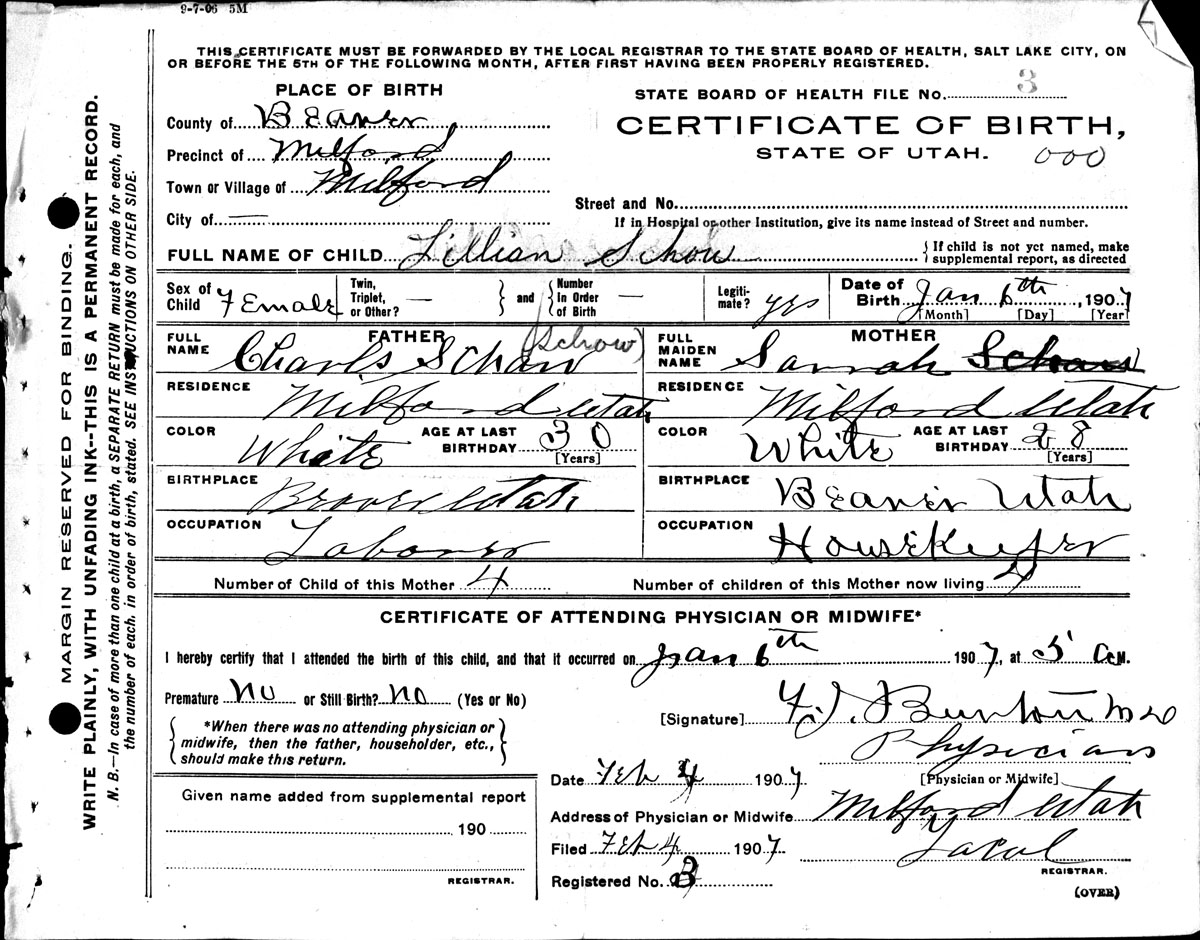 9-7-06 5M
THIS CERTIFICATE MUST BE FORWARDED BY THE LOCAL REGISTRAR TO THE STATE BOARD OF HEALTH, SALT LAKE CITY, ON
OR BEFORE THE 5TH OF THE FOLLOWING MONTH, AFTER FIRST HAVING BEEN PROPERLY REGISTERED.
PLACE OF BIRTH
County of Beaver
Precinct of Milford
Town or Village of Milford
City of —
STATE BOARD OF HEALTH FILE No. 3
CERTIFICATE OF BIRTH,
STATE OF UTAH. 000
Street and No.
If in Hospital or other Institution, give its name instead of Street and number.
FULL NAME OF CHILD Lillian Schow { If child is not yet named, make supplemental report, as directed
Sex of Child Female Twin, Triplet, or Other? — } and { Number In Order of Birth — Legitimate? yes Date of Birth Jan 6th, 1907 [Month] [Day] [Year]
FATHER
FULL NAME Charls Schow (Schow)
RESIDENCE Milford Utah
COLOR White AGE AT LAST BIRTHDAY 30 [Years]
BIRTHPLACE Beaver Utah
OCCUPATION Laborer
MOTHER
FULL MAIDEN NAME Sarrah
RESIDENCE Milford Utah
COLOR White AGE AT LAST BIRTHDAY 28 [Years]
BIRTHPLACE Beaver Utah
OCCUPATION Housekeeper
Number of Child of this Mother 4 Number of children of this Mother now living 4
CERTIFICATE OF ATTENDING PHYSICIAN OR MIDWIFE*
I hereby certify that I attended the birth of this child, and that it occurred on Jan 6th 1907, at 5 A.M.
Premature No or Still Birth? No (Yes or No)
{ *When there was no attending physician or midwife, then the father, householder, etc., should make this return. }
[Signature] Burton MD
Physician
[Physician or Midwife]
Date Feb 4 1907
Address of Physician or Midwife Milford Utah
Filed Feb 4 1907
Local
REGISTRAR.
Registered No. 3
(OVER)
Given name added from supplemental report
190
REGISTRAR.
MARGIN RESERVED FOR BINDING.
WRITE PLAINLY, WITH UNFADING INK--THIS IS A PERMANENT RECORD.
N. B.—In case of more than one child at a birth, a SEPARATE RETURN must be made for each, and
the number of each, in order of birth, stated. SEE INSTRUCTIONS ON OTHER SIDE.